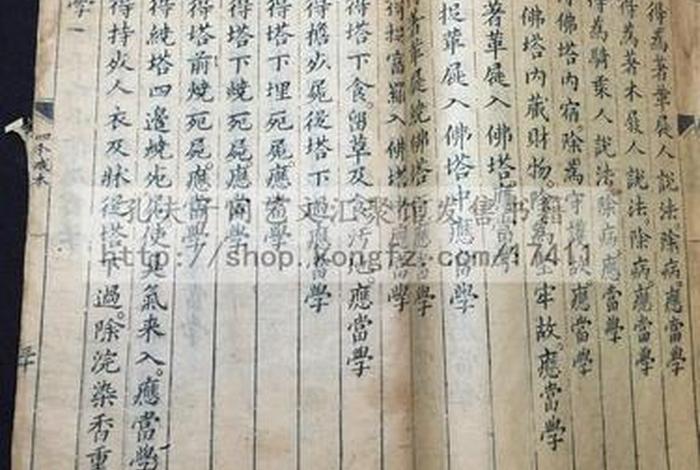 得為著革屣人說法。除病。應當學
得為著木屐人說法。除病。應當學
得為騎乘人說法。除病。應當學
得佛塔內宿。除為守護故。應當學
佛塔內藏財物。除為堅牢故。應當學
著革屣入佛塔應當學
捉革屣入佛塔中應當學
著革屣繞佛塔應當學
得捉富羅入佛塔應當學
得塔下食。留草及食汙地。應當學
得擔死屍從塔下過應當學
得塔下埋死屍應當學
得塔下燒死屍。應當學
得塔前燒死屍。應當學
得繞塔四邊燒死屍使臭氣來入。應當學
得持死人衣及牀從塔下過。除浣染香熏
學一
四分戒本
http://shop.kongfz.com/17411